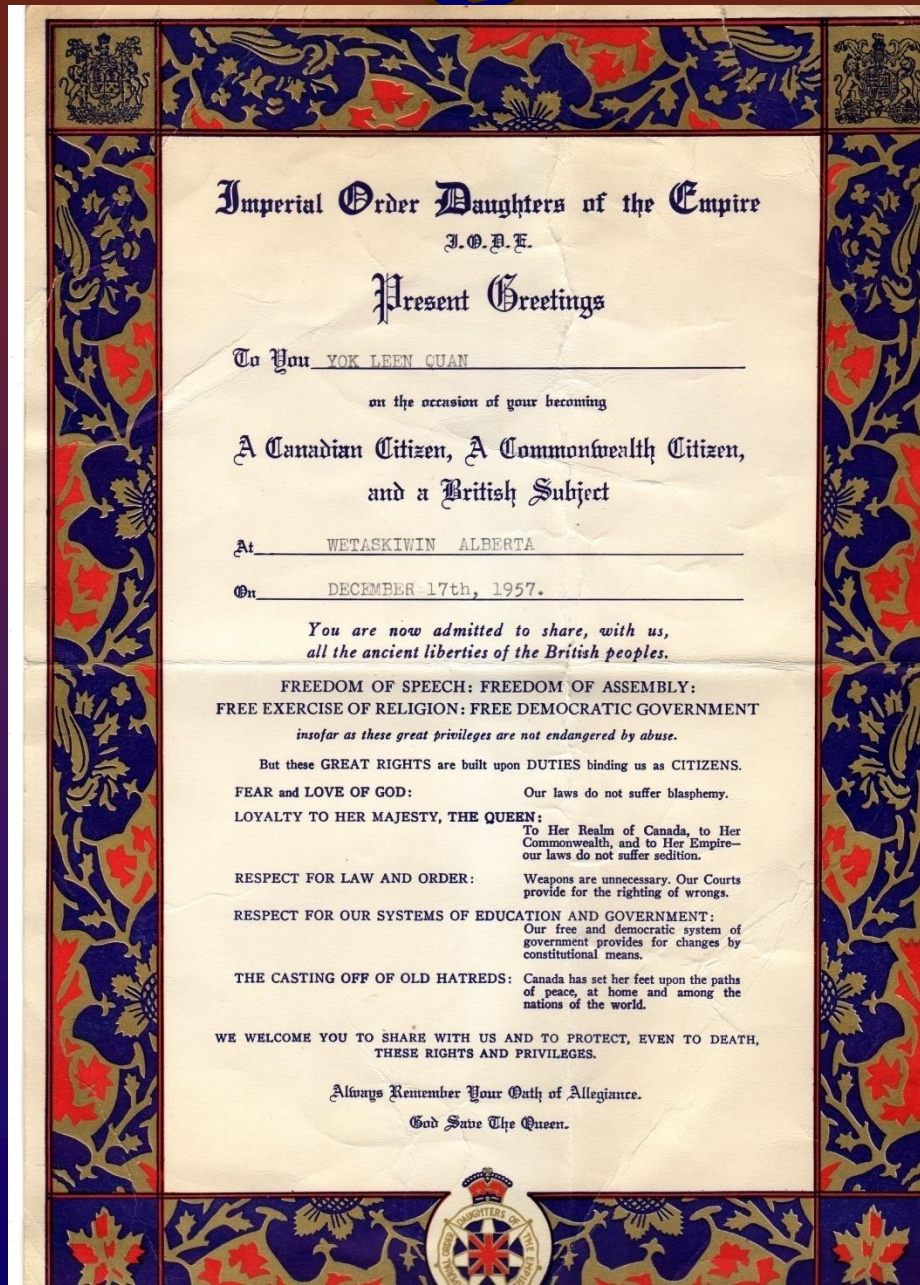 Imperial Order Daughters of the Empire
I.O.D.E.
Present Greetings
To You YOK LEEN QUAN
on the occasion of your becoming
A Canadian Citizen, A Commonwealth Citizen,
and a British Subject
At WETASKIWIN ALBERTA
On DECEMBER 17th, 1957.
You are now admitted to share, with us,
all the ancient liberties of the British peoples.
FREEDOM OF SPEECH: FREEDOM OF ASSEMBLY:
FREE EXERCISE OF RELIGION: FREE DEMOCRATIC GOVERNMENT
insofar as these great privileges are not endangered by abuse.
But these GREAT RIGHTS are built upon DUTIES binding us as CITIZENS.
FEAR and LOVE OF GOD: Our laws do not suffer blasphemy.
LOYALTY TO HER MAJESTY, THE QUEEN:
To Her Realm of Canada, to Her
Commonwealth, and to Her Empire—
our laws do not suffer sedition.
RESPECT FOR LAW AND ORDER: Weapons are unnecessary. Our Courts
provide for the righting of wrongs.
RESPECT FOR OUR SYSTEMS OF EDUCATION AND GOVERNMENT:
Our free and democratic system of
government provides for changes by
constitutional means.
THE CASTING OFF OF OLD HATREDS: Canada has set her feet upon the paths
of peace, at home and among the
nations of the world.
WE WELCOME YOU TO SHARE WITH US AND TO PROTECT, EVEN TO DEATH,
THESE RIGHTS AND PRIVILEGES.
Always Remember Your Oath of Allegiance.
God Save The Queen.
ORDER DAUGHTERS OF THE EMPIRE